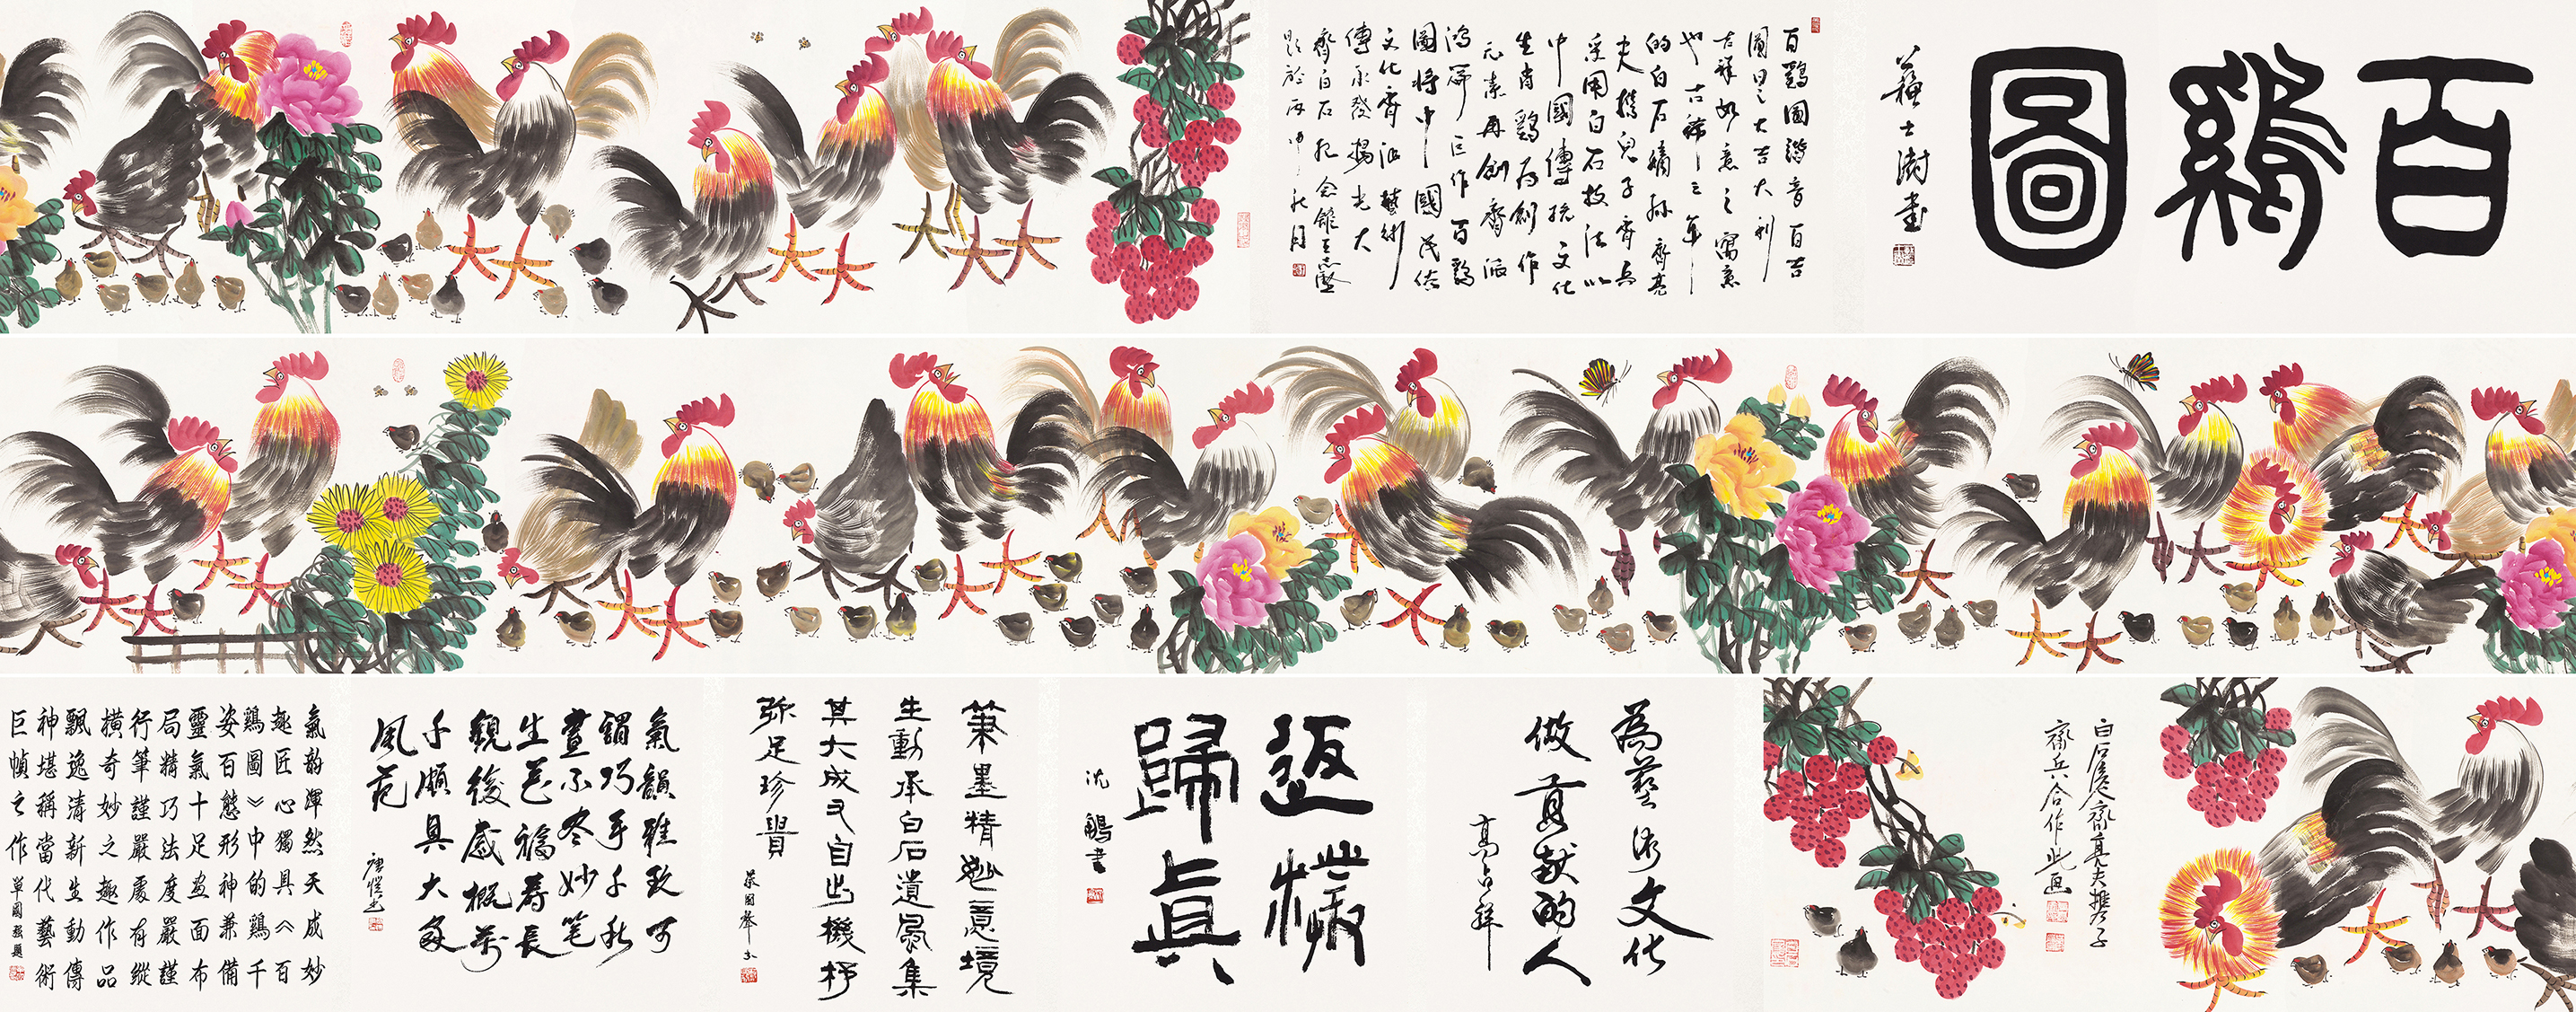 百鷄圖
蘇士澍書
百鷄圖諧音百吉
圖日之大吉大利
吉祥如意之寓意
也古稀之年
的白石嫡孫齊亮
夫携兒子齊兵
采用白石技法以
中國傳統文化
生肖鷄為創作
元素再創齊派
鴻篇巨作百鷄
圖將中國民俗
文化齊派藝術
傳承發揚光大
齊白石紀念館王志堅
題於丙申秋月
白石後人齊亮夫攜子
齊兵合作此画
為藝術文化
做貢献的人
高占祥
返樸
歸真
沈鵬書
筆墨精妙意境
生動承白石遺風集
其大成又自出機杼
弥足珍貴
氣韻雅致可
謂巧手千秋
畫不冬妙笔
生花福壽長
觀後感概万
千頗具大家
風范
唐愷書
氣韵渾然天成妙
趣匠心獨具《百
鷄圖》中的鷄千
姿百態形神兼備
靈氣十足画面布
局精巧法度嚴謹
行筆謹嚴處有縱
橫奇妙之趣作品
飄逸清新生動傳
神堪稱當代藝術
巨幀之作單國強題